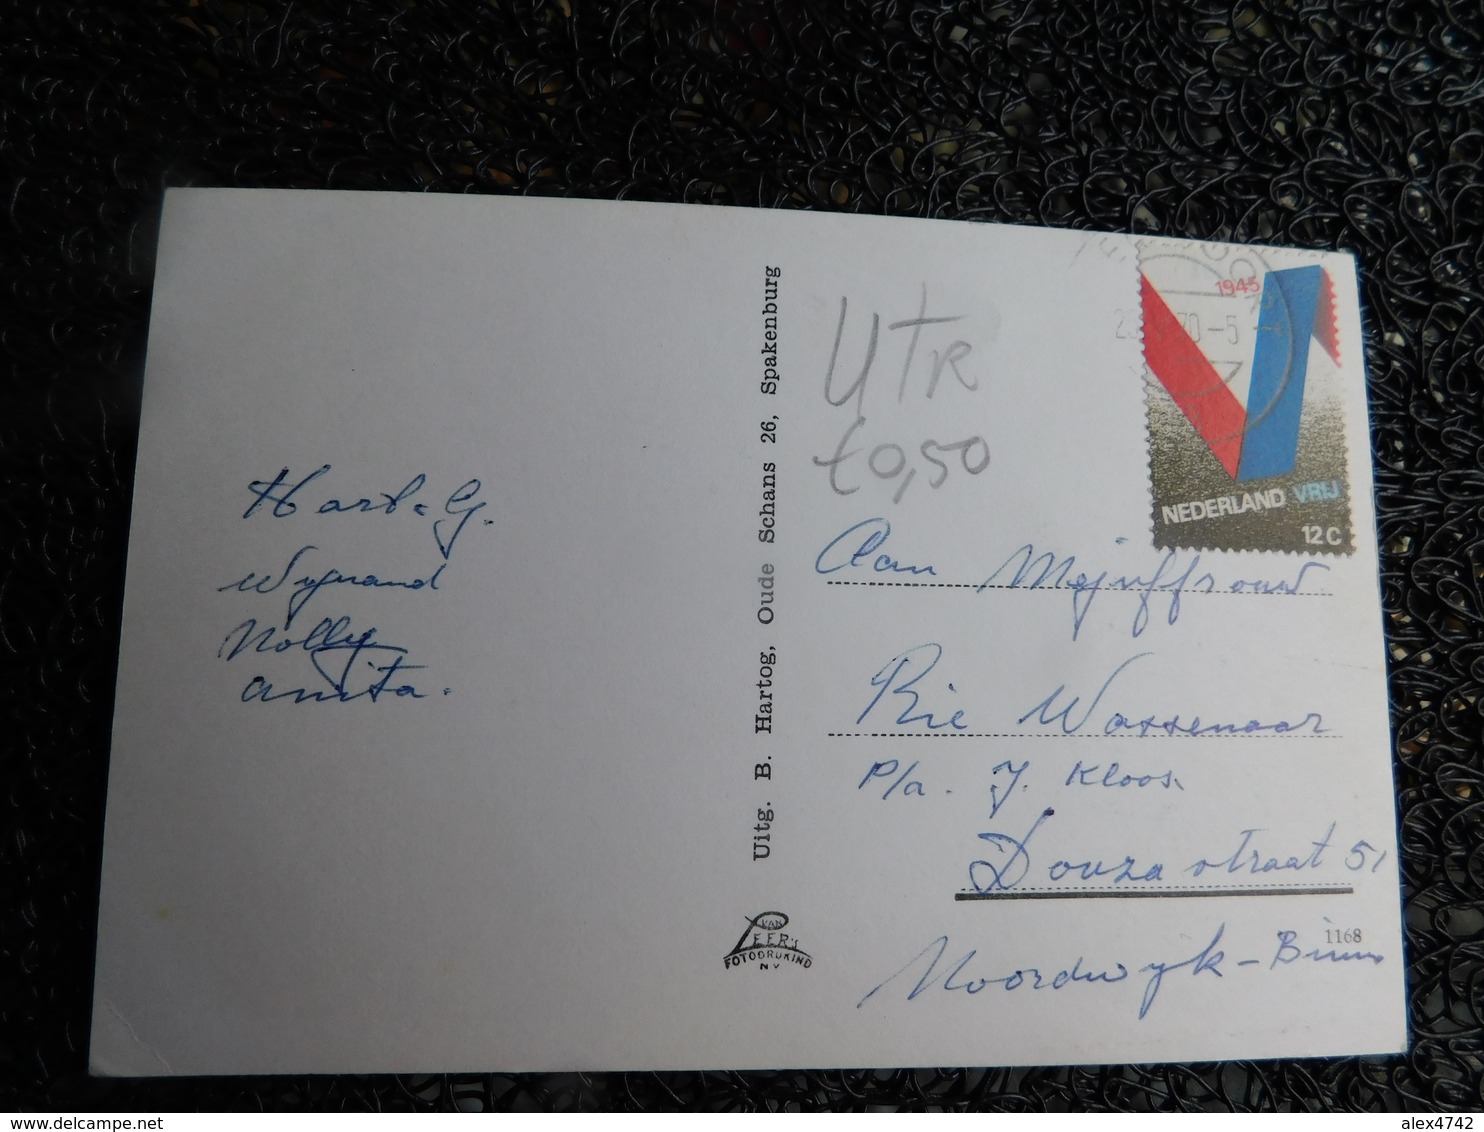 Hart. G.
Wijnand
Nolly
anita.
Uitg. B. Hartog, Oude Schans 26, Spakenburg
VAN
LEER'S
FOTODRUKIND
N V
UTR
€0,50
1945
70-5
NEDERLAND VRIJ
12C
Aan Mejuffrouw
Rie Wassenaar
P/a. J. Kloos.
Douza straat 51
1168
Noordwijk-Binnen
alex4742